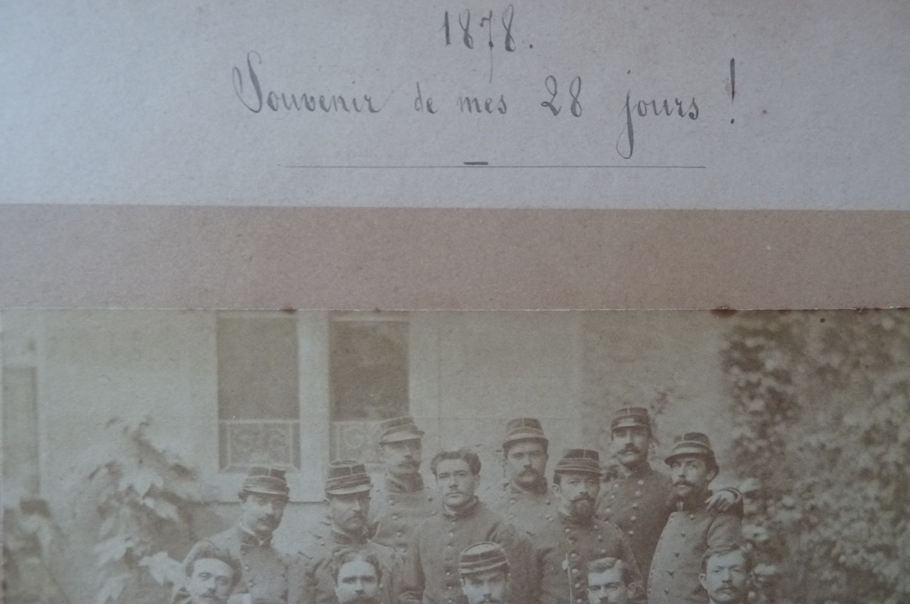 1878.
Souvenir de mes 28 jours !